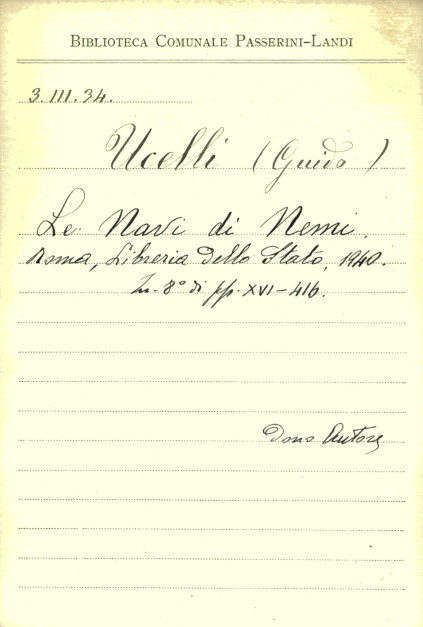 BIBLIOTECA COMUNALE PASSERINI-LANDI
3.III.34.
Ucelli (Guido)
Le Navi di Nemi.
Roma, Libreria dello Stato, 1940.
In-8° di pp. XVI-416.
Dono Autore